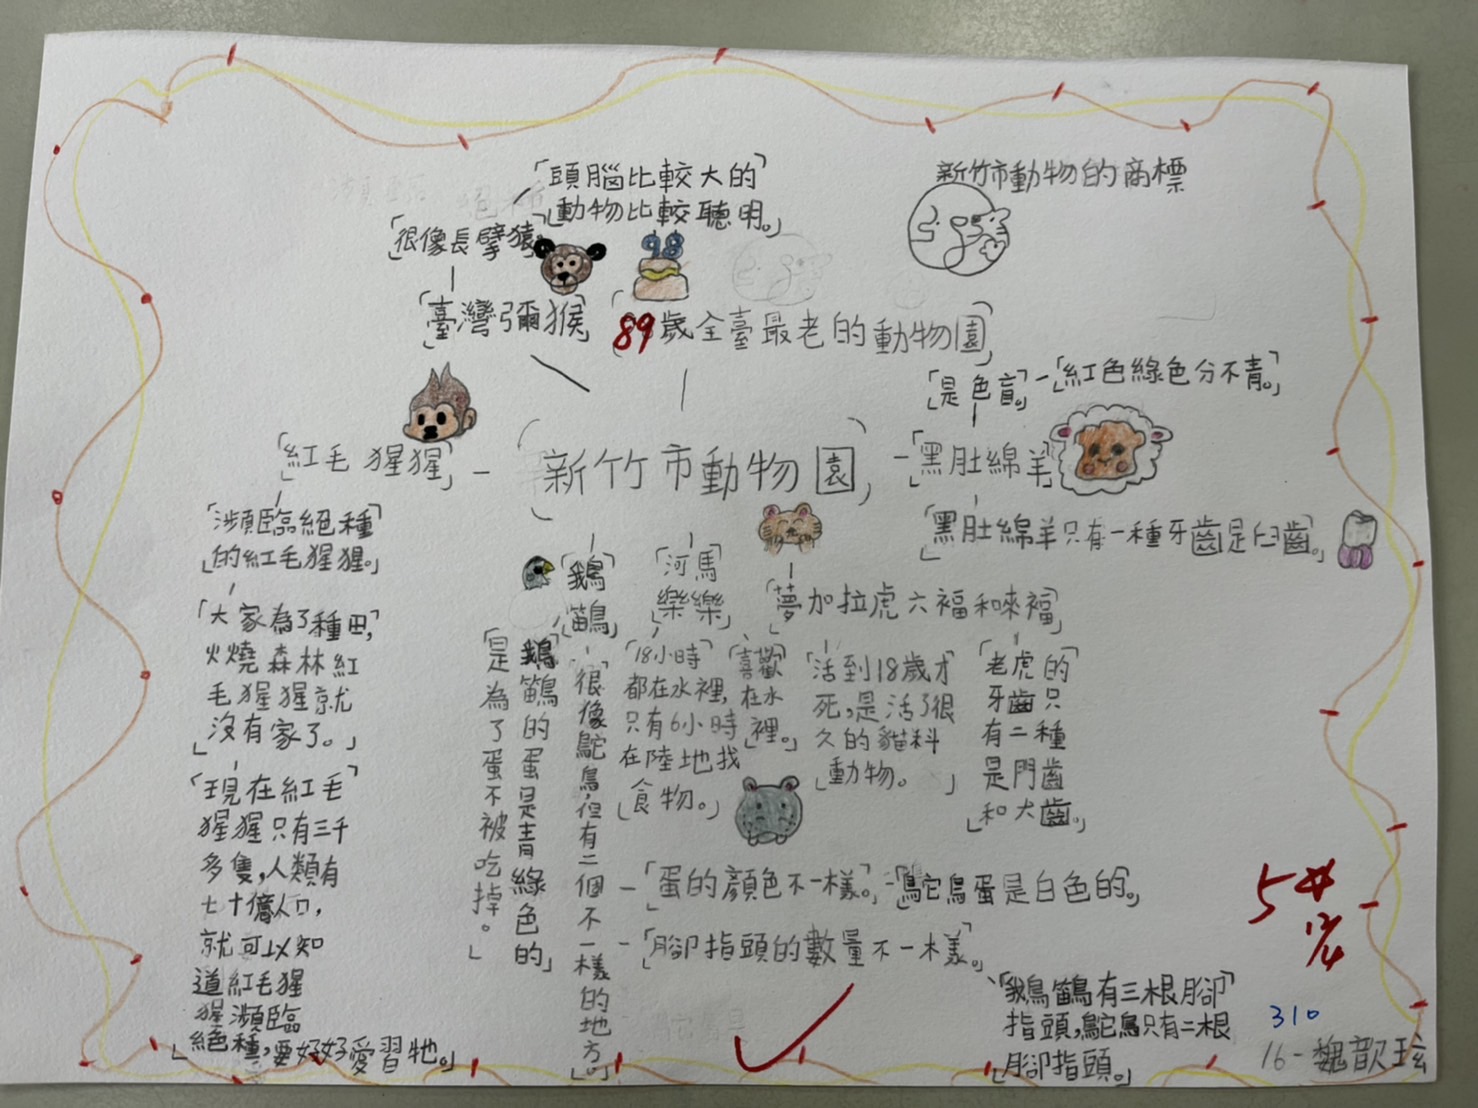 「頭腦比較大的
動物比較聰明。」
「很像長擘猿。」
「臺灣彌猴」
98
「89歲全臺最老的動物園」
新竹市動物的商標
「是色盲。」-「紅色綠色分不青。」
「紅毛猩猩」-
「新竹市動物園」
-「黑肚綿羊」
「黑肚綿羊只有一種牙齒是臼齒。」
「瀕臨絕種
的紅毛猩猩。」
「大家為了種田,
火燒森林紅
毛猩猩就
沒有家了。」
「現在紅毛
猩猩只有三千
多隻,人類有
七十億人口,
就可以知
道紅毛猩
猩瀕臨
絕種,要好好愛習牠。」
「鵝
鶓」
「鵝鶓的蛋是青綠色的
是為了蛋不被吃掉。」
「很像鴕鳥,但有二個不一樣的地方。」
「河馬
樂樂」
「18小時
都在水裡,
只有6小時
在陸地找
食物。」
「喜歡
在水
裡。」
「夢加拉虎六福和來福」
「活到18歲才
死,是活了很
久的貓科
動物。」
「老虎的
牙齒只
有二種
是門齒
和犬齒。」
-「蛋的顏色不一樣。」-「鴕鳥蛋是白色的。」
-「腳指頭的數量不一樣。」
「鵝鶓有三根腳
指頭,鴕鳥只有二根
腳指頭。」
310
16-魏歆玹